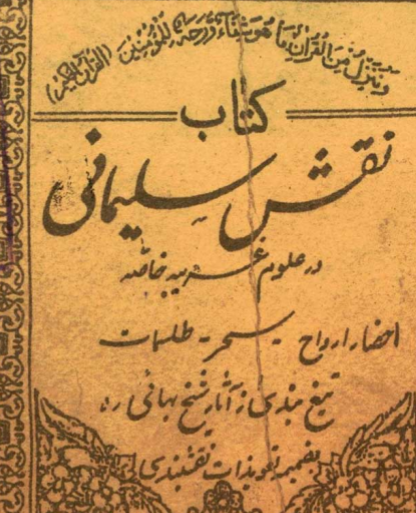 وننزل من القرآن ما هو شفاء ورحمة للمؤمنين (القرآن الكريم)
كتاب
نقش سلیمانی
در علوم غریبه خاصه
احضار ارواح - سحر - طلسمات
تیغ بندی از آثار شیخ بهائی ره
بضمیمه تعویذات نقشبندی